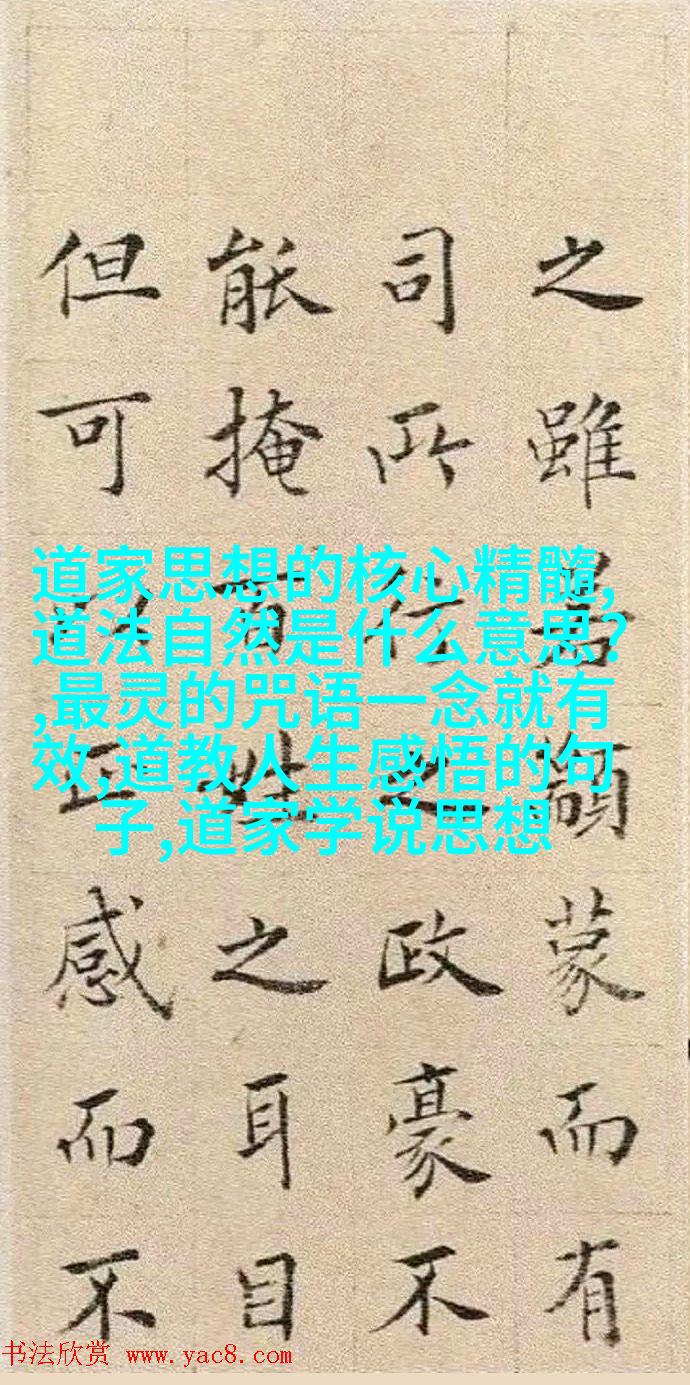 之雖若顓蒙而有
司所行之政豪不
能掩百姓之耳目
但可以正感而不
道家思想的核心精髓,
道法自然是什么意思?
,最灵的咒语一念就有
效,道教人生感悟的句
子,道家学说思想
书法欣赏 www.yac8.com